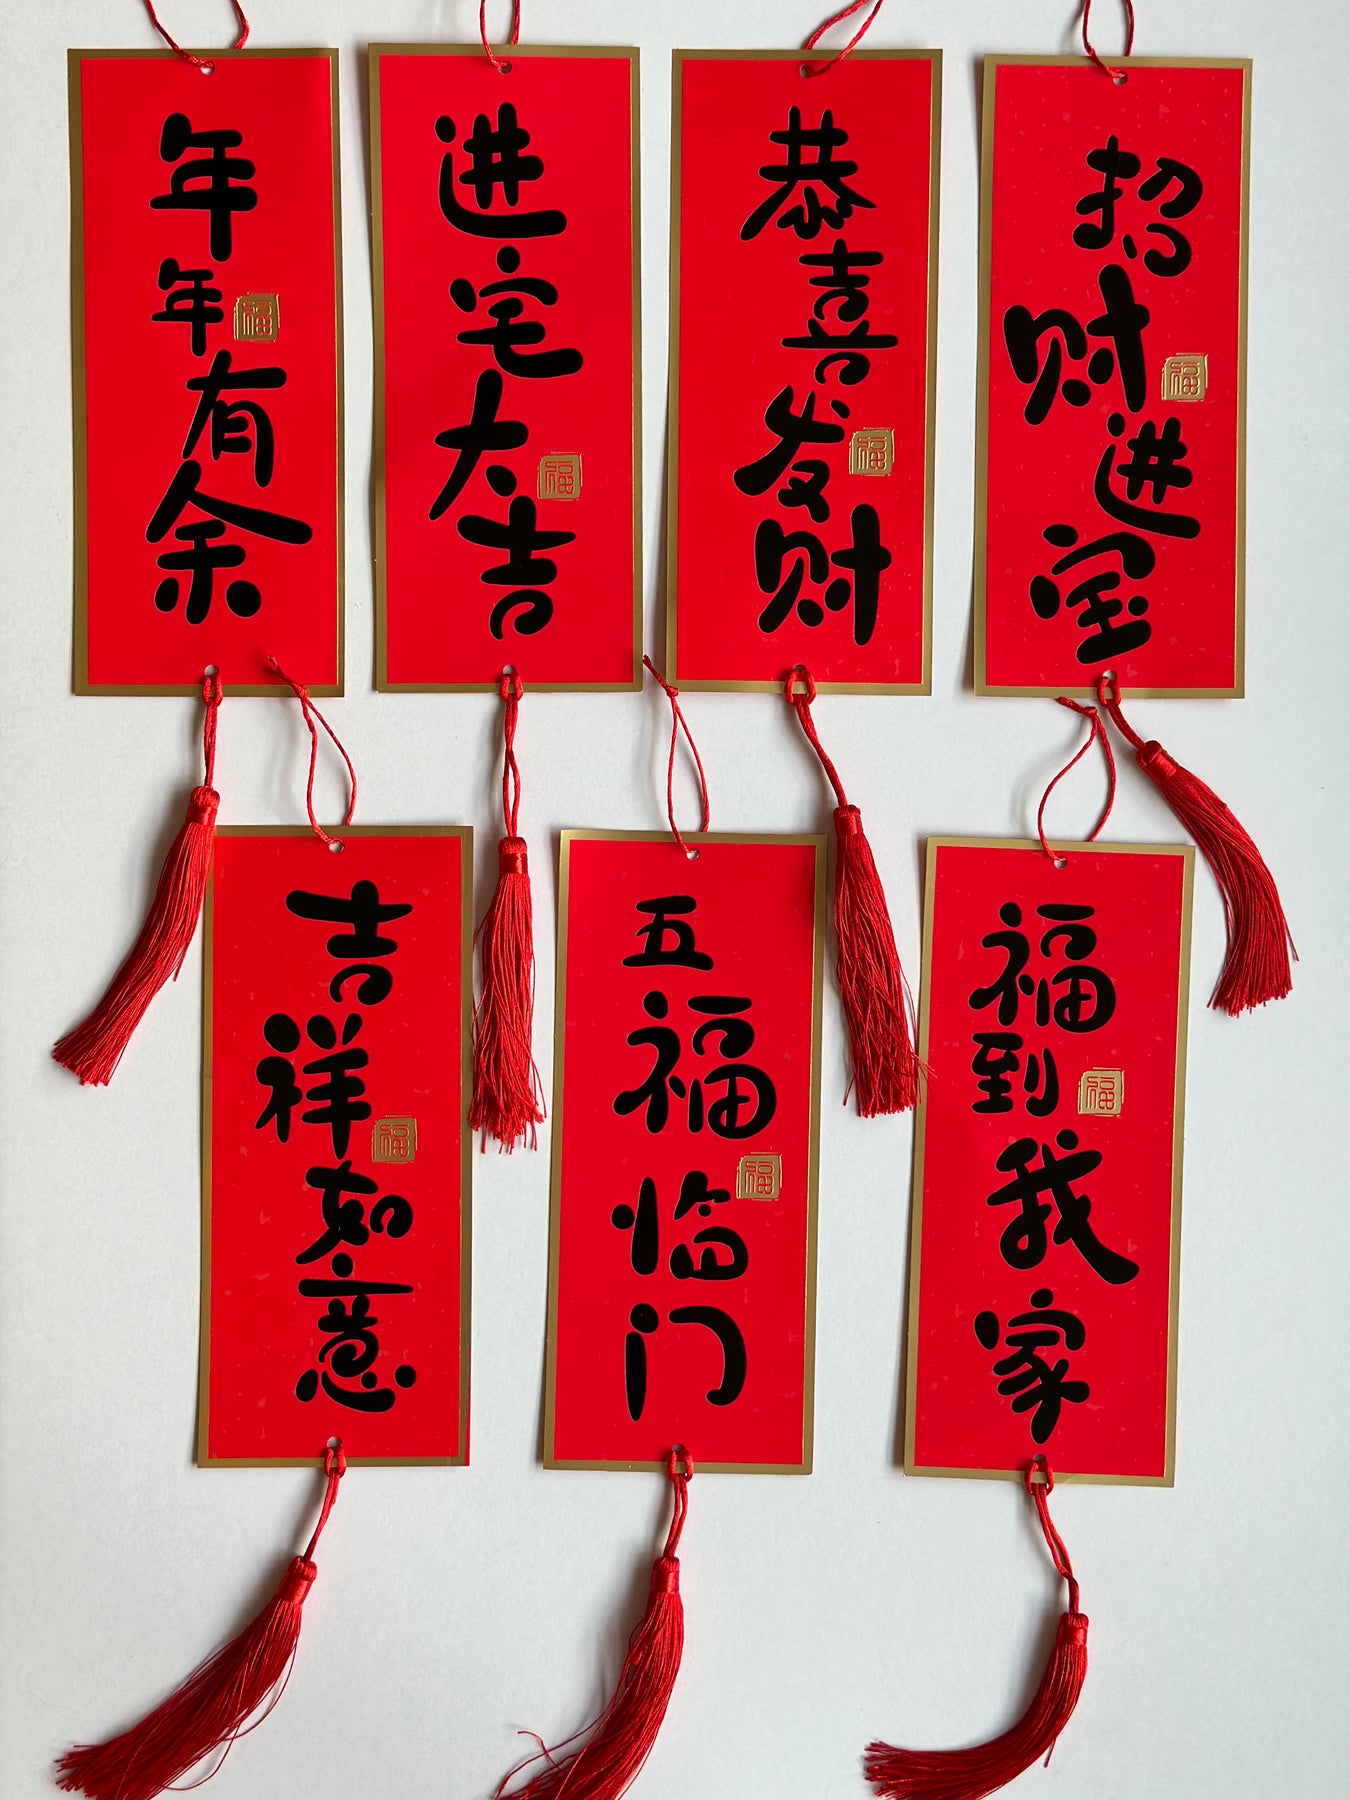 年年有余
福
进宅大吉
福
恭喜发财
福
招财进宝
福
吉祥如意
福
五福临门
福
福到我家
福